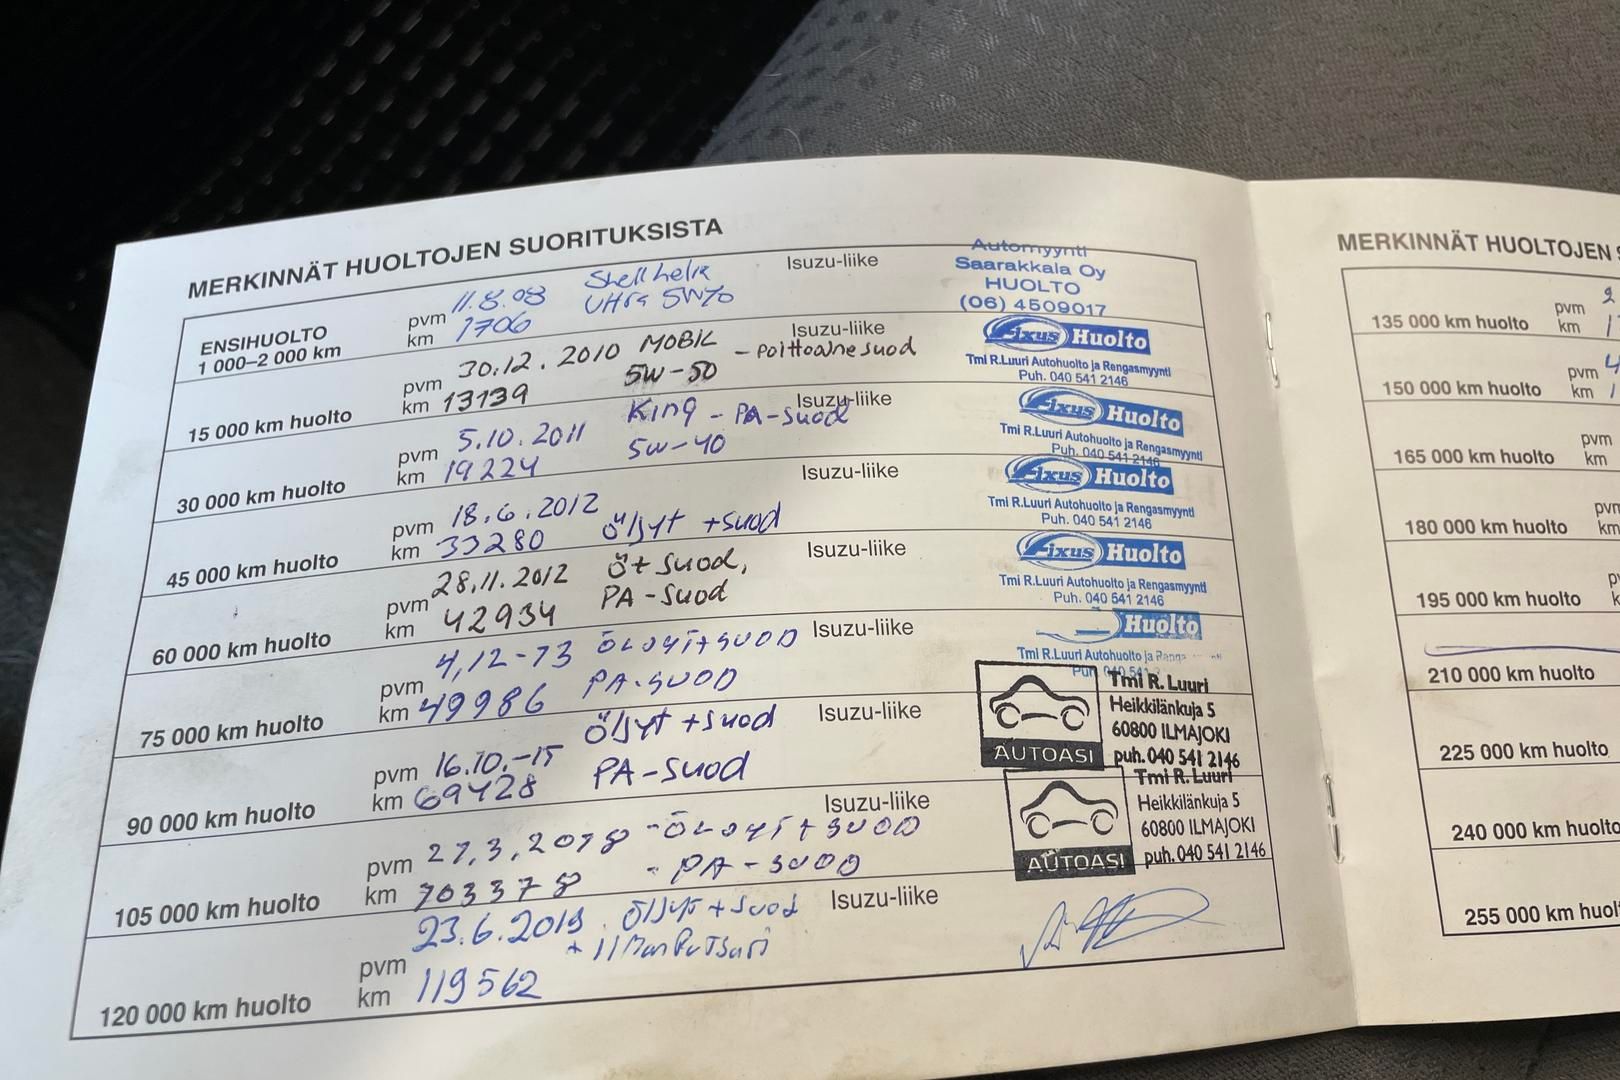 MERKINNÄT HUOLTOJEN SUORITUKSISTA
ENSIHUOLTO
1 000–2 000 km
pvm 11.8.08
km 1706
Shell helix
Ultra 5W40
Isuzu-liike
Automyynti
Saarakkala Oy
HUOLTO
(06) 4509017
15 000 km huolto
pvm 30.12.2010
km 13139
MOBIL
5W-50
- Polttoainesuod
Isuzu-liike
Fixus Huolto
Tmi R.Luuri Autohuolto ja Rengasmyynti
Puh. 040 541 2146
30 000 km huolto
pvm 5.10.2011
km 19224
King - PA-suod
5w-40
Isuzu-liike
Fixus Huolto
Tmi R.Luuri Autohuolto ja Rengasmyynti
Puh. 040 541 2146
45 000 km huolto
pvm 18.6.2012
km 33280
Öljyt +suod
Isuzu-liike
Fixus Huolto
Tmi R.Luuri Autohuolto ja Rengasmyynti
Puh. 040 541 2146
60 000 km huolto
pvm 28.11.2012
km 42934
Ö+suod,
PA-suod
Isuzu-liike
Fixus Huolto
Tmi R.Luuri Autohuolto ja Rengasmyynti
Puh. 040 541 2146
75 000 km huolto
pvm 4,12-13
km 49986
ÖLJYT+SUOD
PA-SUOD
Isuzu-liike
Huolto
Tmi R.Luuri Autohuolto ja
90 000 km huolto
pvm 16.10.-15
km 69428
Öljyt +suod
PA-suod
Isuzu-liike
AUTOASI
Tmi R. Luuri
Heikkilänkuja 5
60800 ILMAJOKI
puh. 040 541 2146
105 000 km huolto
pvm 27.3.2018
km 103378
-ÖLJYT+SUOD
- PA-SUOD
Isuzu-liike
AUTOASI
Tmi R. Luuri
Heikkilänkuja 5
60800 ILMAJOKI
puh. 040 541 2146
120 000 km huolto
pvm 23.6.2019
km 119562
Öljyt +suod
+ IlmanPuTsari
Isuzu-liike
MERKINNÄT HUOLTOJEN
135 000 km huolto
pvm
km
150 000 km huolto
pvm
km
165 000 km huolto
pvm
km
180 000 km huolto
pvm
km
195 000 km huolto
210 000 km huolto
225 000 km huolto
240 000 km huolto
255 000 km